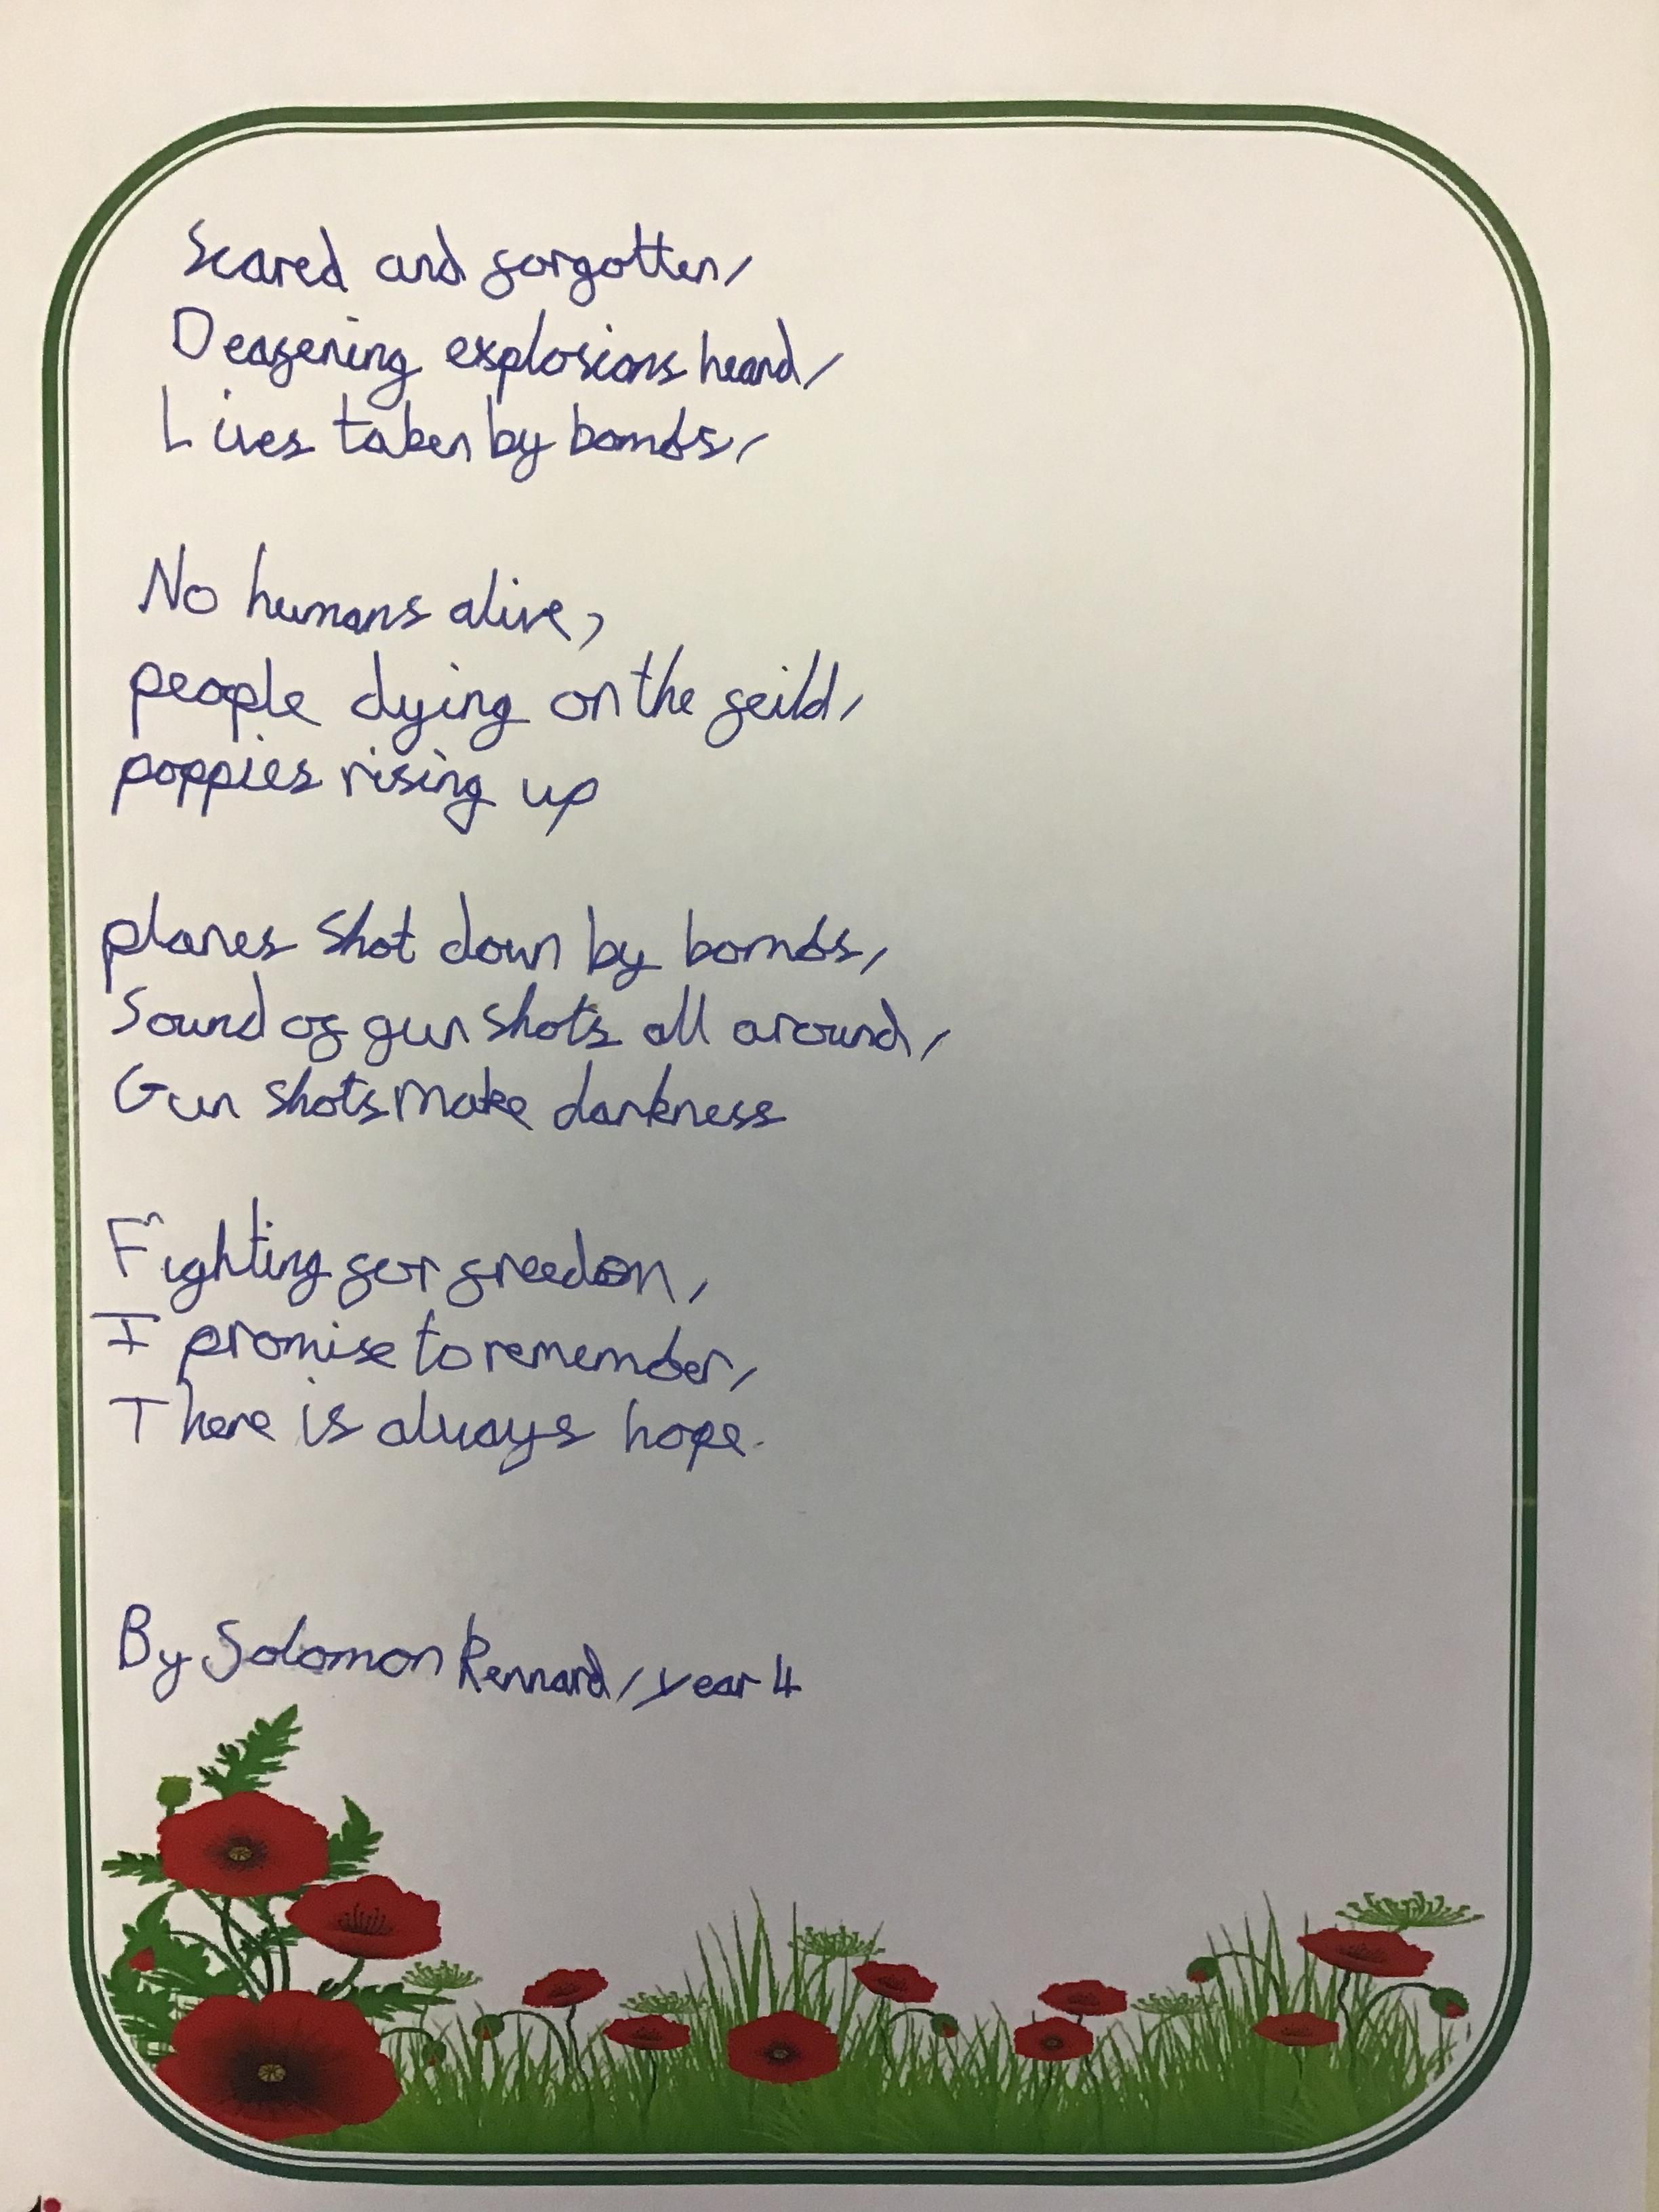 Scared and forgotten,
Deafening explosions heard,
Lives taken by bombs,
No humans alive,
people dying on the feild,
poppies rising up
planes shot down by bombs,
Sound of gun shots all around,
Gun shots make darkness
Fighting for freedom,
I promise to remember,
There is always hope.
By Solomon Rennard, year 4